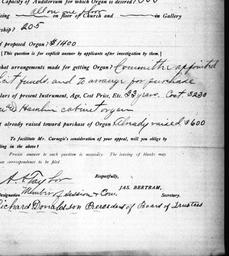 Capacity of Auditorium for which Organ is desired?
all on one floor on floor of Church and in Gallery
ship? 205
f proposed Organ? $1400
[This question is for explicit answer by applicants after investigation by them.]
hat arrangements made for getting Organ? Committee appointed
funds, and to arrange for purchase
lars of present Instrument, Age, Cost Price, Etc. 23 years. Cost $230
& Hamlin cabinet organ
t already raised toward purchase of Organ? Already raised $600
To facilitate Mr. Carnegie's consideration of your appeal, will you obligingly
ling in the above?
Precise answer to each question is necessary. The leaving of blanks may
her correspondence to be filed
Respectfully,
A A Taylor
JAS. BERTRAM,
Designation Member of Session & Com. Secretary.
Richard Donaldson President of Board of Trustees